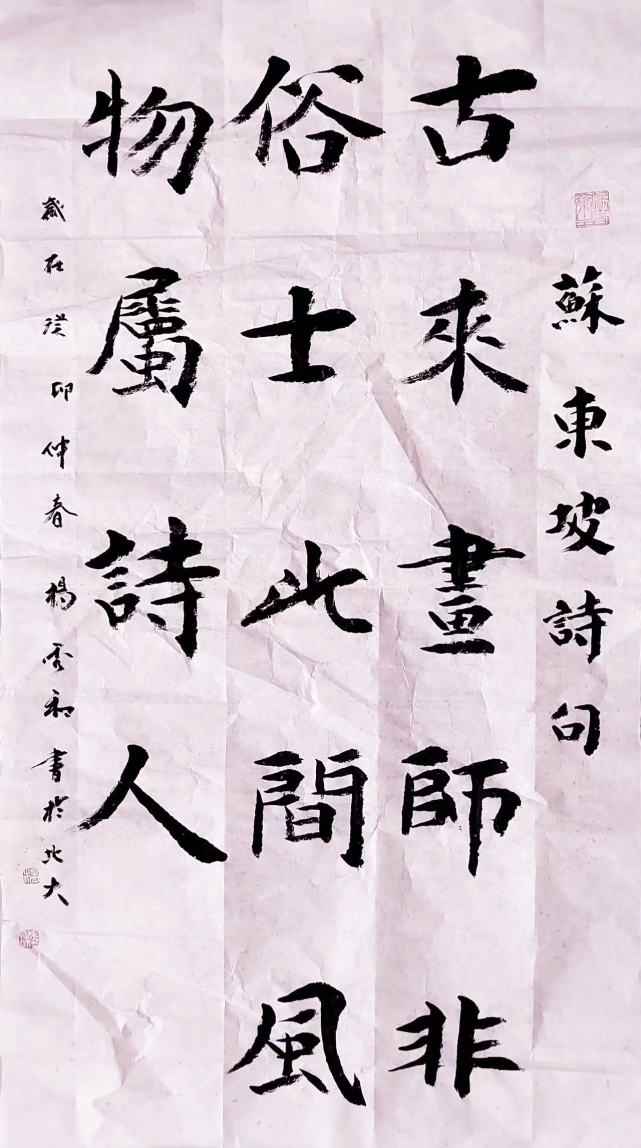 蘇東坡詩句
古來畫師非
俗士此間風
物屬詩人
歲在癸卯仲春楊秀和書於北大